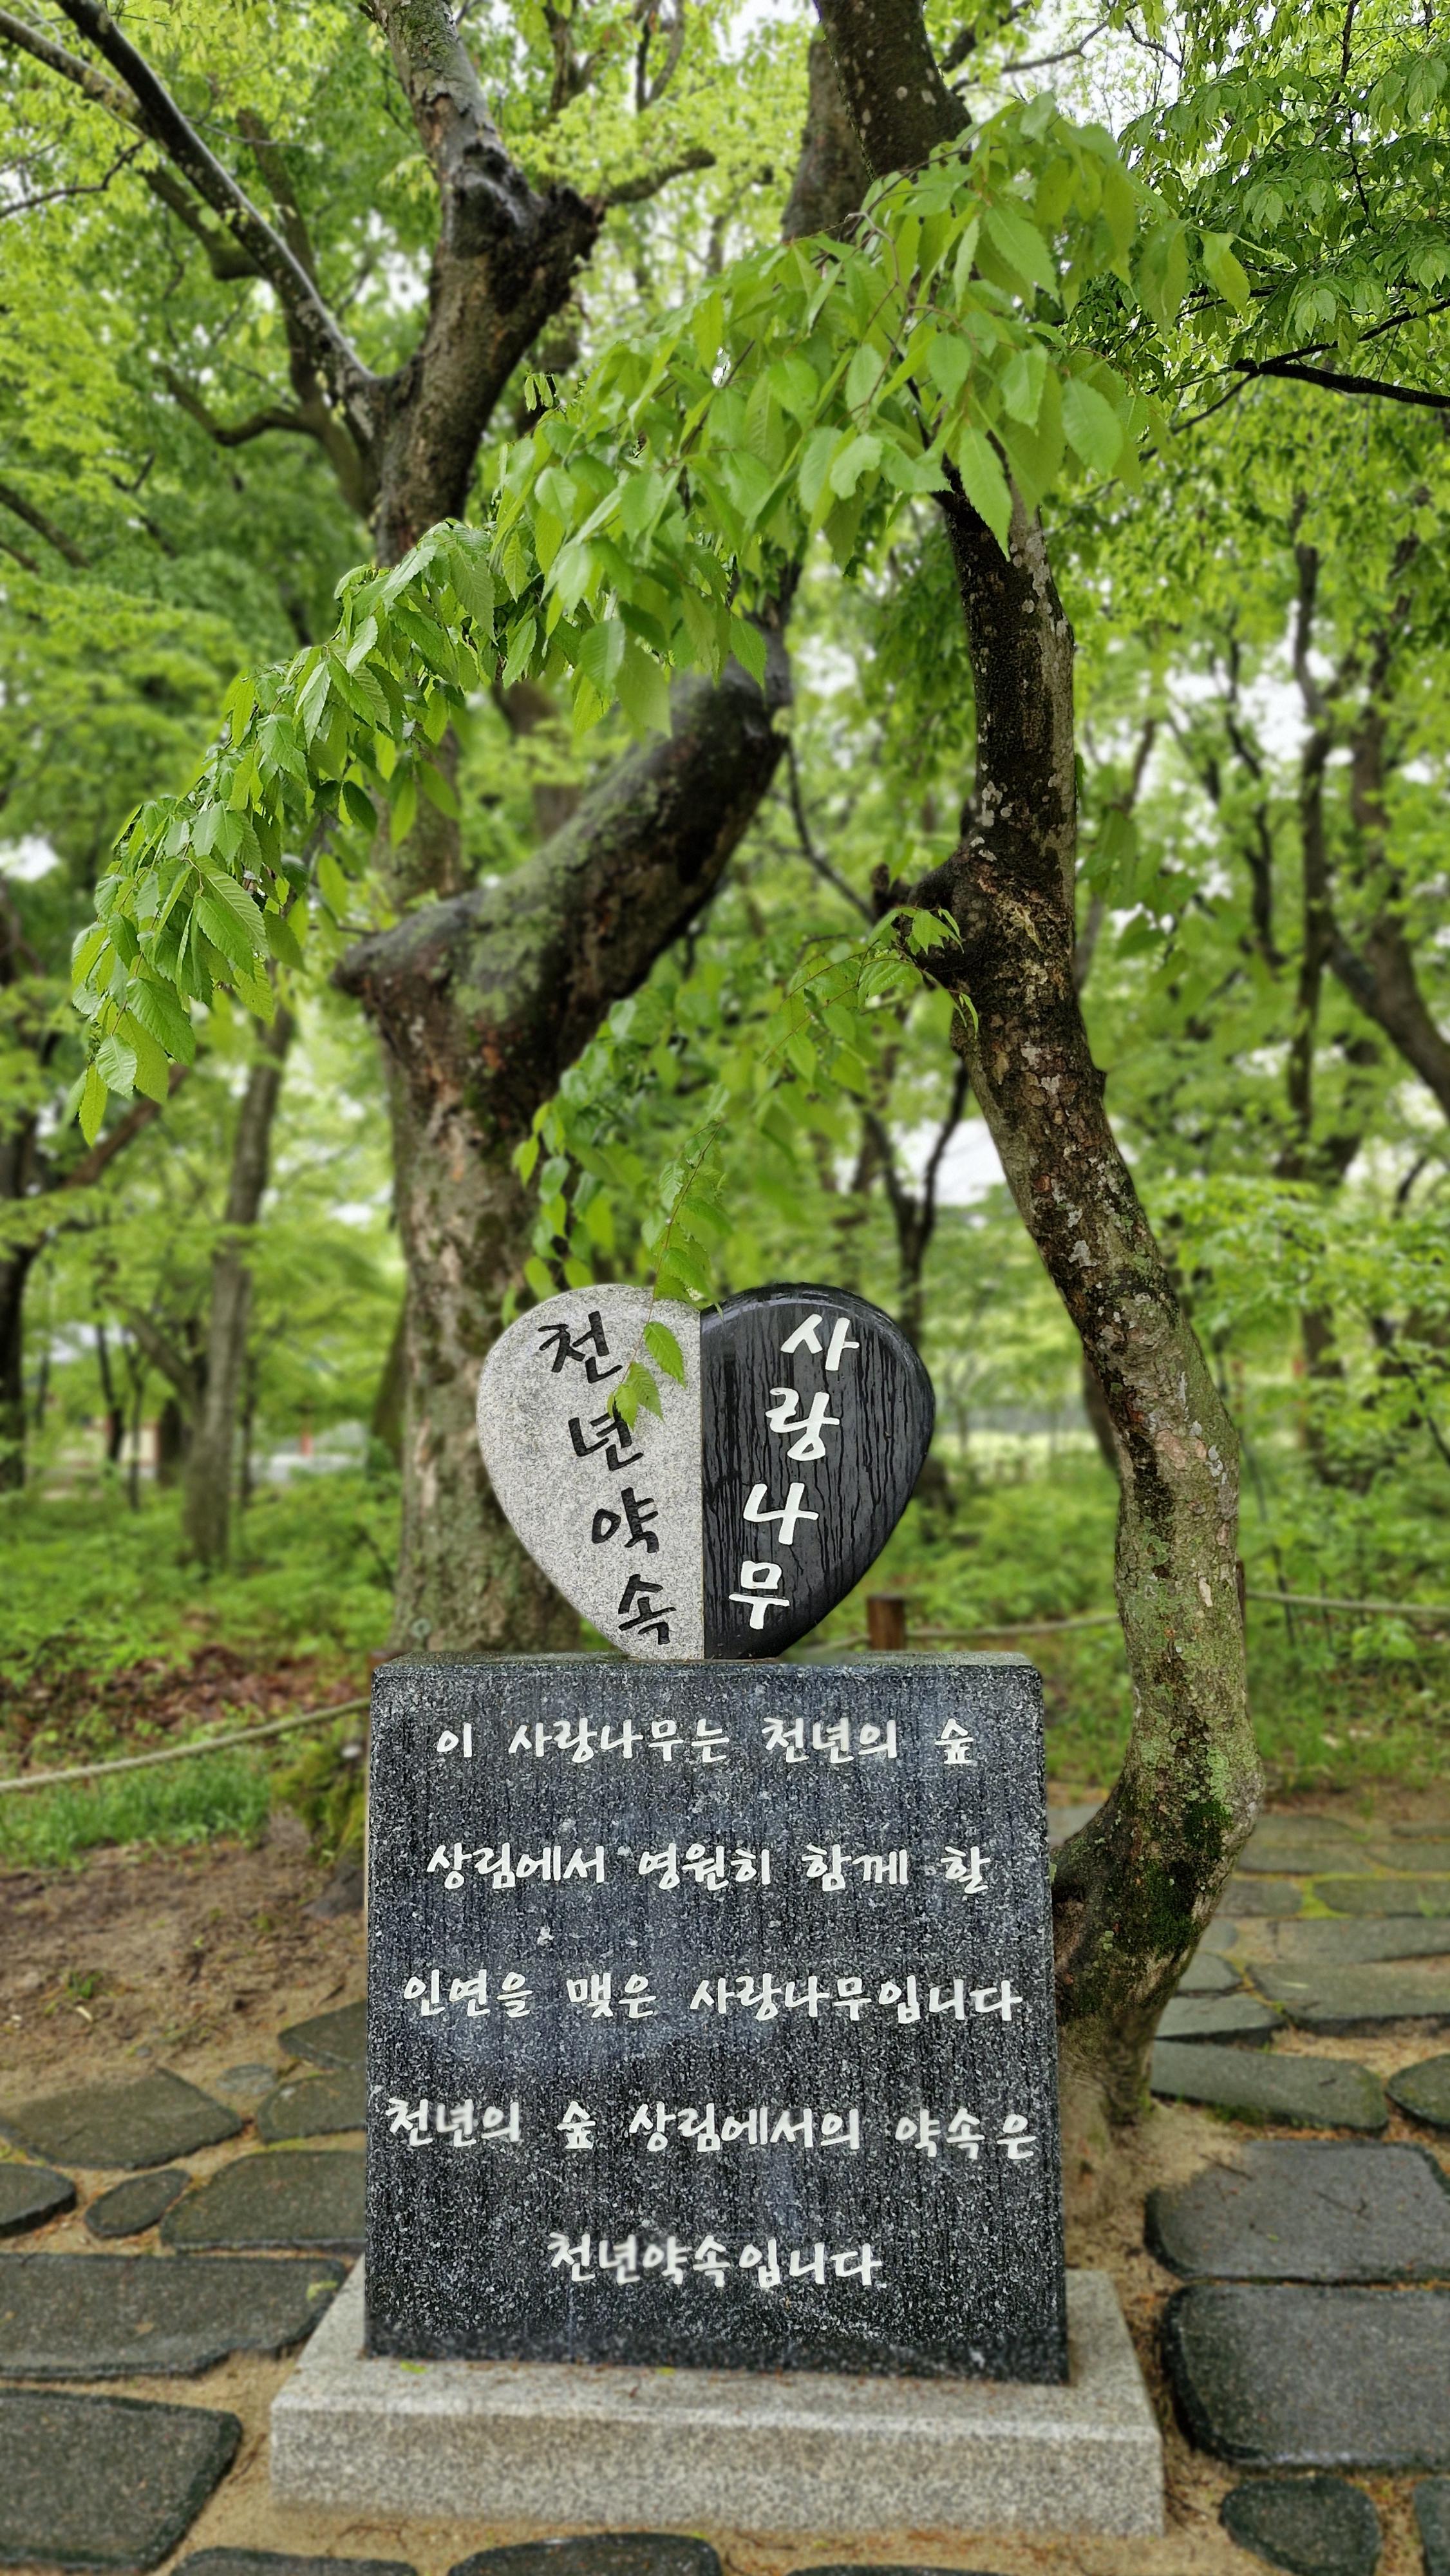 천년약속
사랑나무
이 사랑나무는 천년의 숲
상림에서 영원히 함께 할
인연을 맺은 사랑나무입니다
천년의 숲 상림에서의 약속은
천년약속입니다